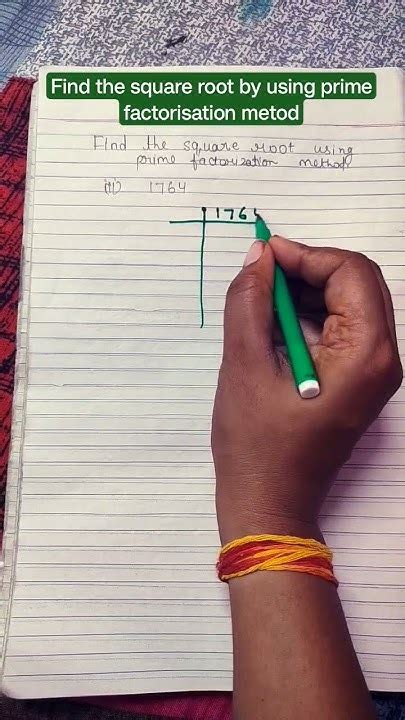 Find the square root by using prime
factorisation metod
Find the square root using
prime factorization method
(iii) 1764
1764